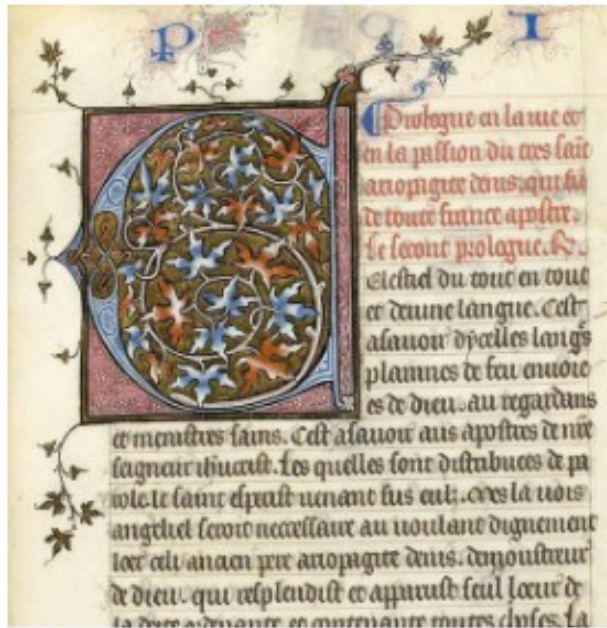 P I
Prologue en la vie et
en la passion du tres sait
ariopagite denis. qui fu
de toute france apostre.
Le secont prologue. R.
Celestiel du tout en tout
et deuine langue. Cest
asauoir dycelles langs
plainnes de feu enuoie
es de dieu. au regardans
et menistres sains. Cest asauoir aus apostres de nre
seigneur ihucrist. Les quelles sont distribuees de pa
role. le saint esperit uenant sus eulz. ceres la uois
angeliel seroit necessaire au uoulant dignement
loer celi ancien pere ariopagite denis. demoustreur
de dieu. qui resplendist et apparust seul lueur de
la ordenante et contenante toutes choses. La